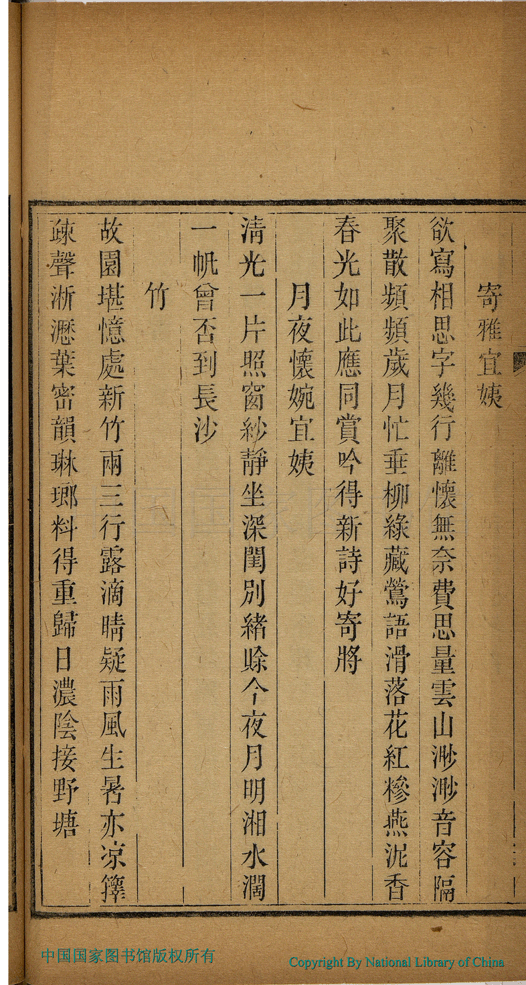 寄雅宜姨
欲寫相思字幾行離懷無奈費思量雲山渺渺音容隔
聚散頻頻歲月忙垂柳綠藏鶯語滑落花紅糝燕泥香
春光如此應同賞吟得新詩好寄將
月夜懷婉宜姨
清光一片照窗紗靜坐深閨別緒賒今夜月明湘水濶
一帆曾否到長沙
竹
故園堪憶處新竹兩三行露滴晴疑雨風生暑亦凉籜
疎聲淅瀝葉密韻琳瑯料得重歸日濃陰接野塘
中国国家图书馆版权所有
Copyright By National Library of China